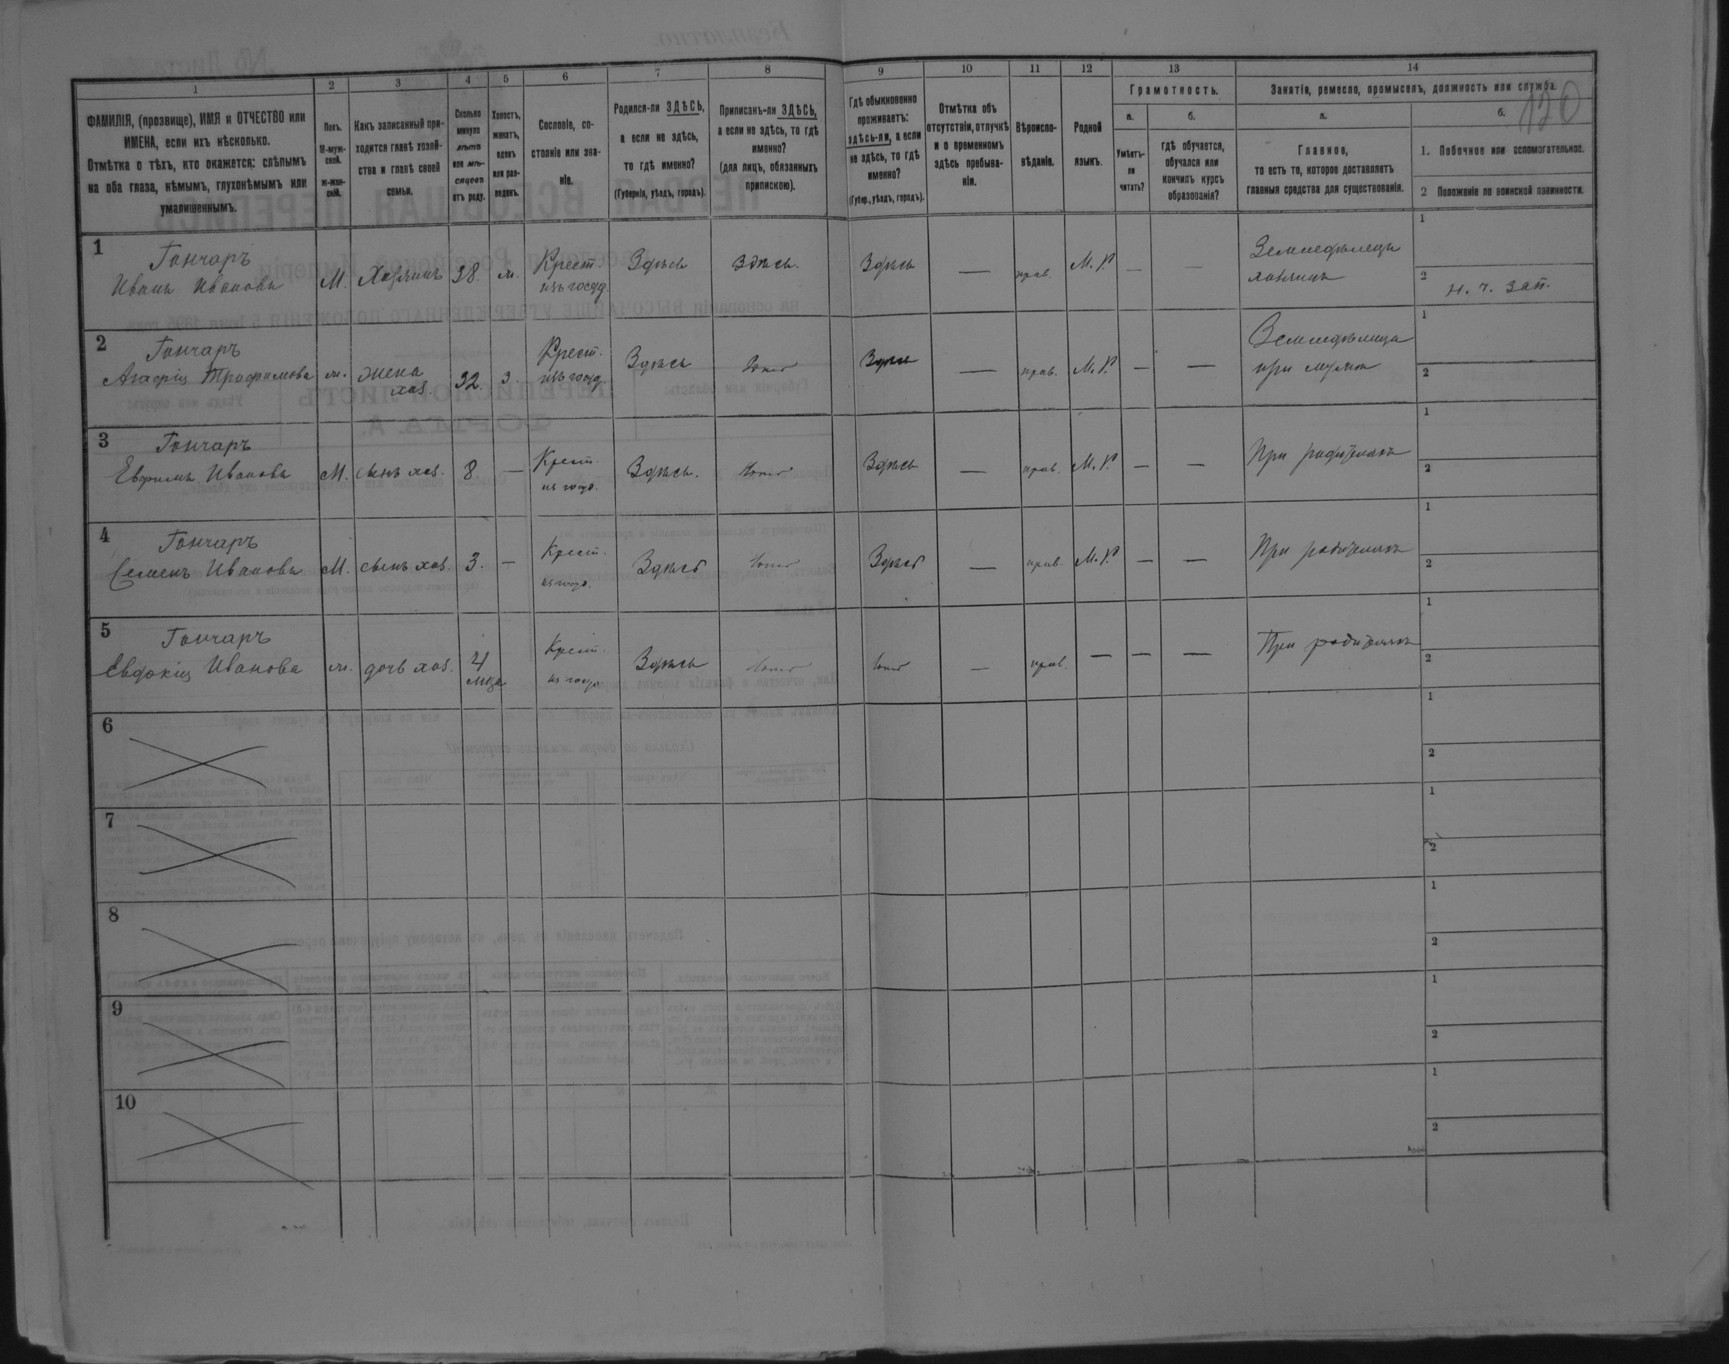 120
1 2 3 4 5 6 7 8 9 10 11 12 13 14
ФАМИЛІЯ, (прозвище), ИМЯ и ОТЧЕСТВО или
ИМЕНА, если ихъ нѣсколько.
Отмѣтка о тѣхъ, кто окажется: слѣпымъ
на оба глаза, нѣмымъ, глухонѣмымъ или
умалишеннымъ.
Полъ.
М-муж-
ской.
Ж-жен-
скій.
Какъ записанный при-
ходится главѣ хозяй-
ства и главѣ своей
семьи.
Сколько
минуло
лѣтъ
или мѣ-
сяцевъ
отъ роду.
Холостъ,
женатъ,
вдовъ
или раз-
веденъ.
Сословіе, со-
стояніе или зва-
ніе.
Родился-ли ЗДѢСЬ,
а если не здѣсь,
то гдѣ именно?
(Губернія, уѣздъ, городъ).
Приписанъ-ли ЗДѢСЬ,
а если не здѣсь, то гдѣ
именно?
(для лицъ, обязанныхъ
припискою).
Гдѣ обыкновенно
проживаетъ:
здѣсь-ли, а если
не здѣсь, то гдѣ
именно?
(Губер., уѣздъ, городъ).
Отмѣтка объ
отсутствіи, отлучкѣ
и о временномъ
здѣсь пребыва-
ніи.
Вѣроиспо-
вѣданіе.
Родной
языкъ.
Грамотность.
а.
Умѣетъ-
ли
читать?
б.
гдѣ обучается,
обучался или
кончилъ курсъ
образованія?
Занятія, ремесло, промыселъ, должность или служба.
а.
Главное,
то есть то, которое доставляетъ
главныя средства для существованія.
б.
1. Побочное или вспомогательное.
2 Положеніе по воинской повинности.
1 Гончаръ
Иванъ Ивановъ М. Хозяинъ 38. ж. Крест. изъ госуд. Здѣсь Здѣсь. Здѣсь — прав. М.Р. — — Земледѣлецъ хозяинъ 1
2 н. ч. зап.
2 Гончаръ
Агафія Трофимова ж. жена хоз. 32. з. Крест. изъ госуд. Здѣсь тоже Здѣсь — прав. М.Р. — — Земледѣлица при мужѣ 1
2
3 Гончаръ
Евфимъ Ивановъ М. сынъ хоз. 8. — Крест. из госуд. Здѣсь. тоже Здѣсь — прав. М.Р. — — При родителяхъ 1
2
4 Гончаръ
Семенъ Ивановъ М. сынъ хоз. 3. — Крест. из госуд. Здѣсь тоже Здѣсь — прав. М.Р. — — При родителяхъ 1
2
5 Гончаръ
Евдокія Иванова ж. дочь хоз. 4 мѣся Крест. из госуд. Здѣсь тоже тоже — прав. — — — При родителяхъ 1
2
6 1
2
7 1
2
8 1
2
9 1
2
10 1
2